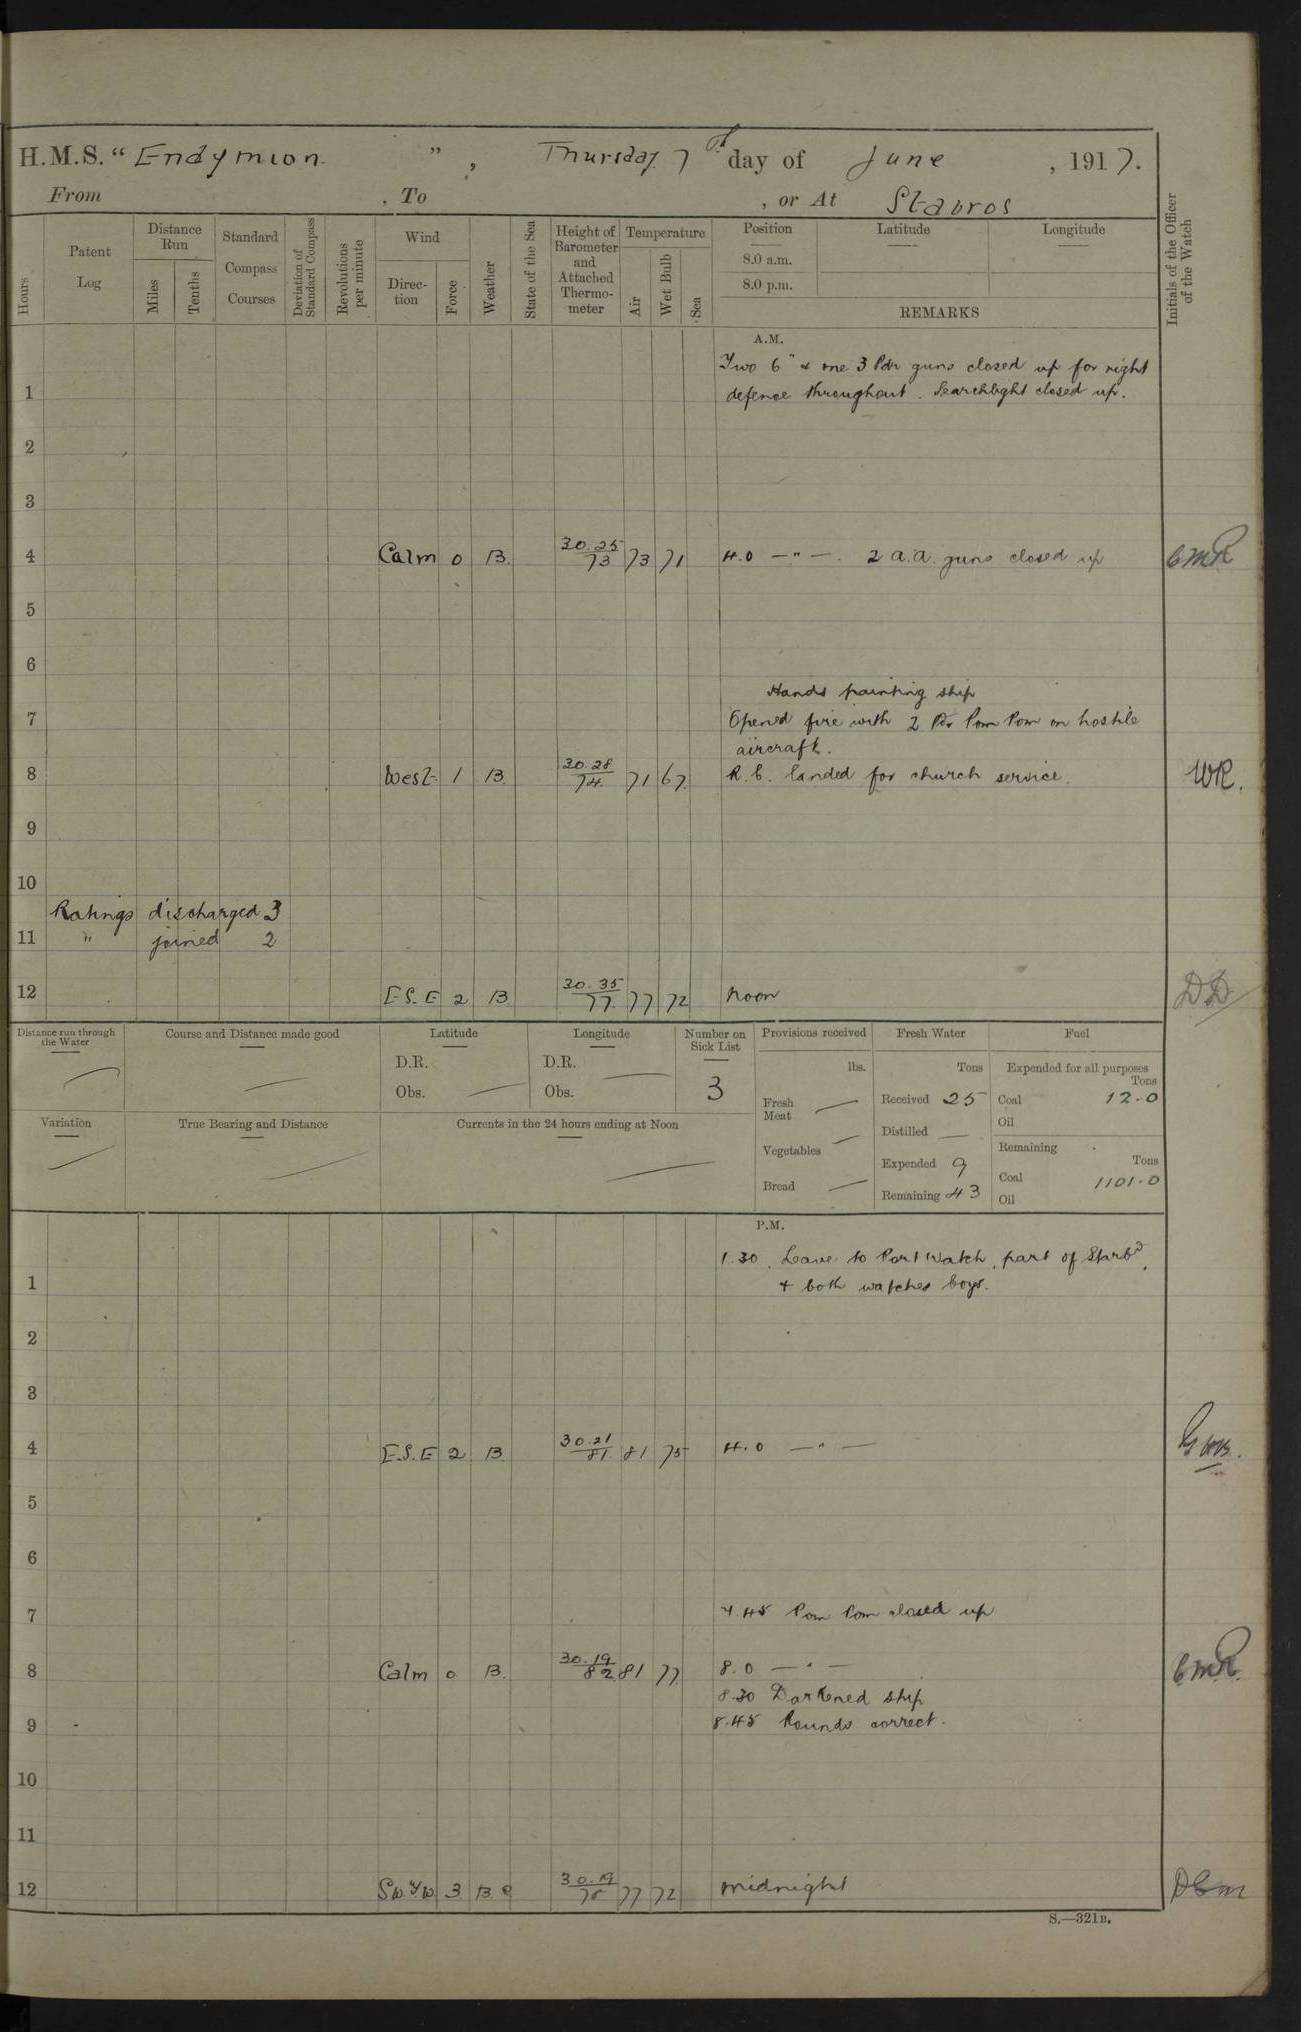 H.M.S. "Endymion", Thursday 7th day of June, 1917.
From , To , or At Stavros
Initials of the Officer of the Watch
Hours
Patent Log
Distance Run
Miles
Tenths
Standard Compass Courses
Deviation of Standard Compass
Revolutions per minute
Wind
Direction
Force
Weather
State of the Sea
Height of Barometer and Attached Thermometer
Temperature
Air
Wet Bulb
Sea
Position
8.0 a.m.
8.0 p.m.
Latitude
Longitude
REMARKS
A.M.
Two 6" & one 3 Pdr guns closed up for night
1 defence throughout. Searchlight closed up.
2
3
4 Calm 0 B. 30.25/73 73 71 4.0 — " —. 2 a.a. guns closed up
5
6
Hands painting ship
7 Opened fire with 2 Pdr Pom Pom on hostile
aircraft.
8 West 1 B 30.28/74 71 67 R.C. landed for church service. WR.
9
10
Ratings discharged 3
11 " joined 2
12 E.S.E 2 B 30.35/77 77 72 Noon
Distance run through the Water
Course and Distance made good
Latitude
D.R.
Obs.
Longitude
D.R.
Obs.
Number on Sick List
3
Provisions received
lbs.
Fresh Meat
Vegetables
Bread
Fresh Water
Tons
Received 25
Distilled —
Expended 9
Remaining 43
Fuel
Expended for all purposes
Tons
Coal 12.0
Oil
Remaining
Tons
Coal 1101.0
Oil
Variation
True Bearing and Distance
Currents in the 24 hours ending at Noon
P.M.
1.30. Leave to Port Watch, part of Starbd,
1 & both watches boys.
2
3
4 E.S.E 2 B 30.21/81 81 75 4.0 — " —
5
6
7 7.45 Pom Pom closed up
8 Calm 0 B. 30.19/82 81 77 8.0 — " —
8.30 Darkened ship
9 8.45 Rounds correct.
10
11
12 3 B.C 30.19 77 72 Midnight
S.—321B.